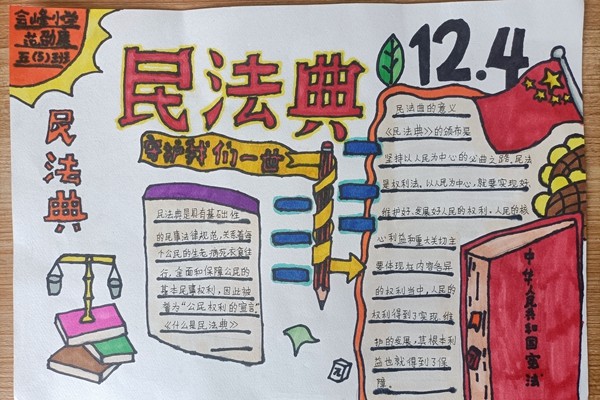 金峰小学
范劭康
五(5)班
民法典
12.4
守护我们一世
民法典
民法典是具有基础性
的民事法律规范,关系着每
个公民的生老病死衣食住
行,全面和保障公民的
基本民事权利,因此被
誉为“公民权利的宣言”
《什么是民法典》
民法典的意义
《民法典》的颁布是
坚持以人民为中心的必由之路.民法
是权利法,以人民为中心,就要实现好
维护好.发展好人民的权利,人民的核
心利益和重大关切主
要体现在内容各异
的权利当中,人民的
权利得到了实现.维
护的发展,其根本利
益也就得到了保
障.
中华人民共和国宪法